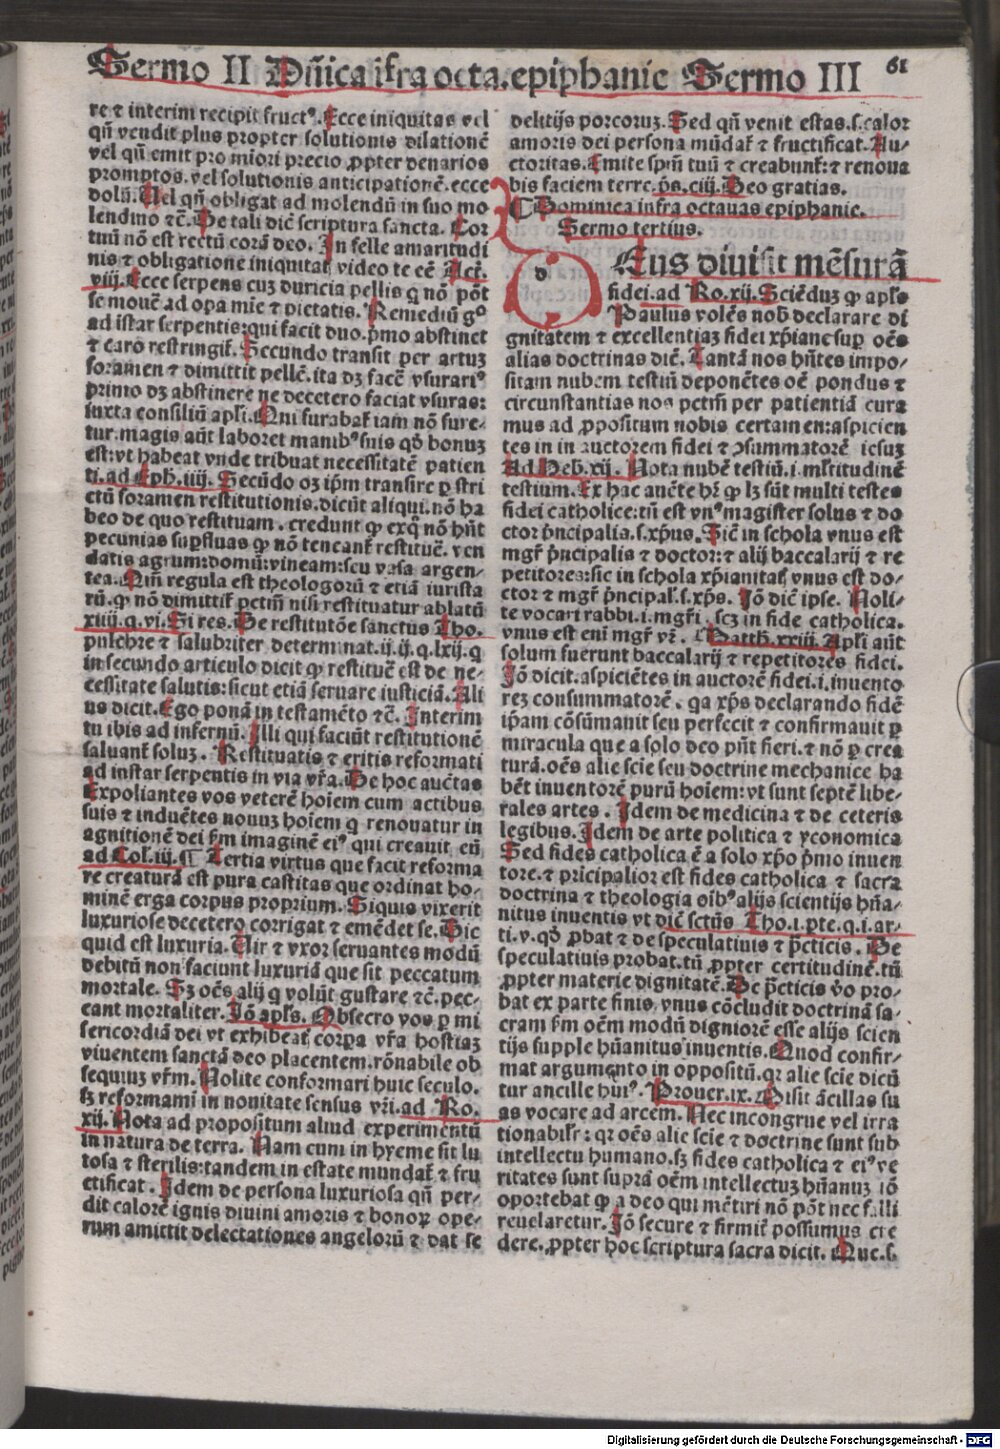 Sermo II Dñica ifra octa. epiphanie Sermo III 61
re ⁊ interim recipit fructꝰ. Ecce iniquitas vel
qñ vendit plus propter solutionis dilationē
vel qñ emit pro miori precio ꝓpter denarios
promptos. vel solutionis anticipationē. ecce
dolū. Uel qñ obligat ad molendū in suo mo
lendino ⁊c̄. De tali dic̄ scriptura sancta. Cor
tuū nō est rectū corā deo. In felle amaritudi
nis ⁊ obligatione iniquitat̄ video te eē Act̄.
viij. Ecce serpens cuꝫ duricia pellis q̄ nō pōt
se mouē ad opa mīe ⁊ pietatis. Remediū gͦ
ad istar serpentis: qui facit duo. p̄mo abstinet
⁊ carō restringit̄. Secundo transit per artuꝫ
foramen ⁊ dimittit pellē. ita dꝫ facē vsurariꝰ
primo dꝫ abstinere ne decetero faciat vsuras:
iuxta consiliū apl̄i. Qui furabat̄ iam nō fure-
tur. magis aūt laboret manibꝰ suis qd̄ bonuꝫ
est: vt habeat vnde tribuat necessitatē patien
ti. ad Eph. iiij. Secūdo dꝫ ip̄m transire ꝑ stri
ctū foramen restitutionis. dicūt aliqui. nō ha
beo de quo restituam. credunt ꝙ exq̄ nō hn̄t
pecunias suꝑfluas ꝙ nō teneant̄ restituē. ven
datis agrum: domū: vineam: seu vasa argen-
tea. Qm̄ regula est theologorū ⁊ etiā iurista
rū. ꝙ nō dimittit̄ pctm̄ nisi restituatur ablatū
xiiij. q. vi. Si res. De restitutōe sanctus Tho.
pulchre ⁊ salubriter determinat. ij. ij. q. lxij. q
in secundo articulo dicit ꝙ restituē est de ne-
cessitate salutis: sicut etiā seruare iusticiā. Ali
us dicit. Ego ponā in testamēto ⁊c̄. Interim
tu ibis ad infernū. Illi qui faciūt restitutionē
saluant̄ soluꝫ. Restituatis ⁊ eritis reformati
ad instar serpentis in via vr̄a. De hoc auc̄tas
Expoliantes vos veterē hoīem cum actibus
suis ⁊ induētes nouuꝫ hoīem q̄ renouatur in
agnitionē dei ẜm imaginē eiꝰ qui creauit eū
ad Col̄. iij. ¶ Tertia virtus que facit reforma
re creaturā est pura castitas que ordinat ho-
minē erga corpus proprium. Siquis vixerit
luxuriose decetero corrigat ⁊ emēdet se. Dic
quid est luxuria. Uir ⁊ vxor seruantes modū
debitū non faciunt luxuriā que sit peccatum
mortale. Sꝫ oēs alij q̄ volūt gustare ⁊c̄. pec-
cant mortaliter. Iō apl̄s. Obsecro vos ꝑ mi
sericordiā dei vt exhibeat̄ corꝑa vr̄a hostiaꝫ
viuentem sanctā deo placentem. rōnabile ob
sequiuꝫ vr̄m. Nolite conformari huic seculo.
sꝫ reformami in nouitate sensus vr̄i. ad Ro.
xij. Nota ad propositum aliud experimentū
in natura de terra. Nam cum in hyeme sit lu
tosa ⁊ sterilis: tandem in estate mundat̄ ⁊ fru
ctificat. Idem de persona luxuriosa qñ per-
dit calorē ignis diuini amoris ⁊ bonoꝝ ope-
rum amittit delectationes angelorū ⁊ dat se
delitijs porcoruꝫ. Sed qñ venit estas. s. calor
amoris dei persona mūdat̄ ⁊ fructificat. Au-
ctoritas. Emite sp̄m tuū ⁊ creabunt̄: ⁊ renoua
bis faciem terre. ps. ciij. Deo gratias.
¶ Dominica infra octauas epiphanie.
Sermo tertius.
DEus diuisit mēsurā
fidei. ad Ro. xij. Sciēduꝫ ꝙ apl̄s
Paulus volēs nob̄ declarare di
gnitatem ⁊ excellentiaꝫ fidei xp̄iane suꝑ oēs
alias doctrinas dic̄. Tantā nos hn̄tes impo-
sitam nubem testiū deponētes oē pondus ⁊
circunstantias nos pctm̄ per patientiā cura
mus ad ꝓpositum nobis certamen: aspicien
tes in in auctorem fidei ⁊ ꝯsummatorē iesuꝫ
Ad Heb. xij. Nota nubē testiū. i. ml̄titudinē
testium. Ex hac auc̄te hr̄ ꝙ lꝫ sūt multi testes
fidei catholice: tn̄ est vnꝰ magister solus ⁊ do
ctor p̄ncipalis. s. xp̄us. Sic̄ in schola vnus est
mgr̄ p̄ncipalis ⁊ doctor: ⁊ alij baccalarij ⁊ re
petitores: sic in schola xp̄ianitat̄ vnus est do-
ctor ⁊ mgr̄ p̄ncipal̄. s. xp̄s. Iō dic̄ ipse. Noli-
te vocari rabbi. i. mgr̄i. scꝫ in fide catholica.
vnus est eni mgr̄ vr̄. Matth. xxiij. Apl̄i aūt
solum fuerunt baccalarij ⁊ repetitores fidei.
Iō dicit. aspiciētes in auctorē fidei. i. inuento
reꝫ consummatorē. qa xp̄s declarando fidē
ip̄am cōsūmauit seu perfecit ⁊ confirmauit ꝑ
miracula que a solo deo pn̄t fieri. ⁊ nō ꝑ crea
turā. oēs alie scīe seu doctrine mechanice ha
bēt inuentorē purū hoīem: vt sunt septē libe-
rales artes. Idem de medicina ⁊ de ceteris
legibus. Idem de arte politica ⁊ yconomica
Sed fides catholica ē a solo xp̄o p̄mo inuen
tore. ⁊ p̄ncipalior est fides catholica ⁊ sacra
doctrina ⁊ theologia oībꝰ alijs scientijs hūa-
nitus inuentis vt dic̄ sctūs Tho. i. pte. q. i. ar-
ti. v. qd̄ ꝓbat ⁊ de speculatiuis ⁊ p̄cticis. De
speculatiuis probat. tū ꝓpter certitudinē. tū
ꝓpter materie dignitatē. De p̄cticis v̄o pro-
bat ex parte finis. vnus cōcludit doctrinā sa-
cram ẜm oēm modū digniorē esse alijs scien
tijs supple hūanitus inuentis. Quod confir-
mat argumento in oppositū. qꝛ alie scīe dicū
tur ancille huiꝰ. Prouer. ix. Misit ācillas su
as vocare ad arcem. Nec incongrue vel irra
tionabilr̄: qꝛ oēs alie scīe ⁊ doctrine sunt sub
intellectu humano. sꝫ fides catholica ⁊ eiꝰ ve
ritates sunt supra oēm intellectuꝫ hūanuꝫ iō
oportebat ꝙ a deo qui mētiri nō pōt nec falli
reuelaretur. Iō secure ⁊ firmit̄ possumus cre
dere. ꝓpter hoc scriptura sacra dicit. Que. s.
Digitalisierung gefördert durch die Deutsche Forschungsgemeinschaft - DFG